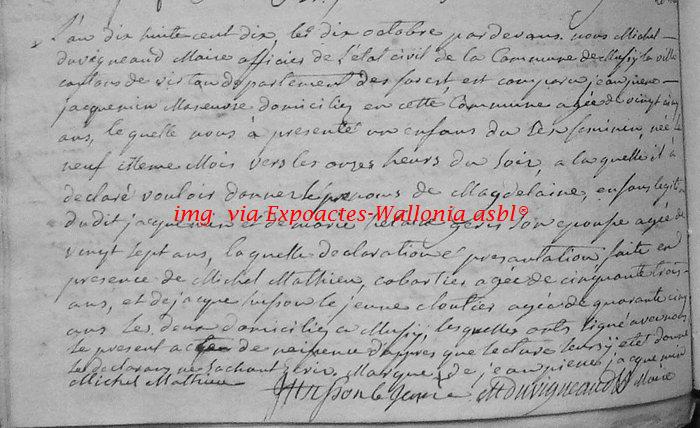 L'an dix huite cent dix, le dix octobre par devans nous Michel
duvigneaud Maire officier de l'état civil de la Commune de Musÿ la ville
cantons de virton departement des forest, est comparu jean piere
jacquemin Maneuvre domicilié en cette Commune agée de vingt cinq
ans, le quelle nous à présenté un enfans du Sex feminin, née le
neuf Meme Mois vers les onzes heurs du Soir, a la quelle il à
declaré vouloir donner le prenoms de Magdelaine, enfans legit
du dit jacquemin et de marie son epouse agée de
vingt sept ans, la quelle declaration et presantation faite en
presence de Michel Mathieu, cabartier agée de cinquante trois
ans, et de jacque husson le jeune cloutier agée de quarante cinq
ans les deux domiciliez a Musÿ, les quelles onts signé avec nous
le present acte de neisence d'apres que lecture leurs ÿ eté donné
le declarans ne sachant ecrir, Marque de jean piere jacquemin
Michel Mathieu husson le jeune MDuvigneaud Maire
img via Expoactes-Wallonia asbl®